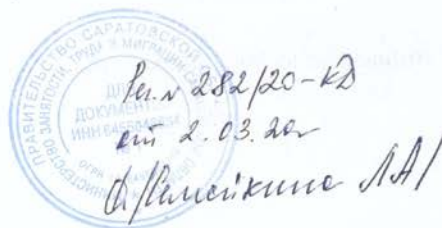 ПРАВИТЕЛЬСТВО САРАТОВСКОЙ
МИНИСТЕРСТВО ЗАНЯТОСТИ, ТРУДА И МИГРАЦИИ
ДЛЯ
ДОКУМЕНТОВ
ИНН
Рег. № 282/20-КД
от 2.03.20г
/Семейкина Л.А/